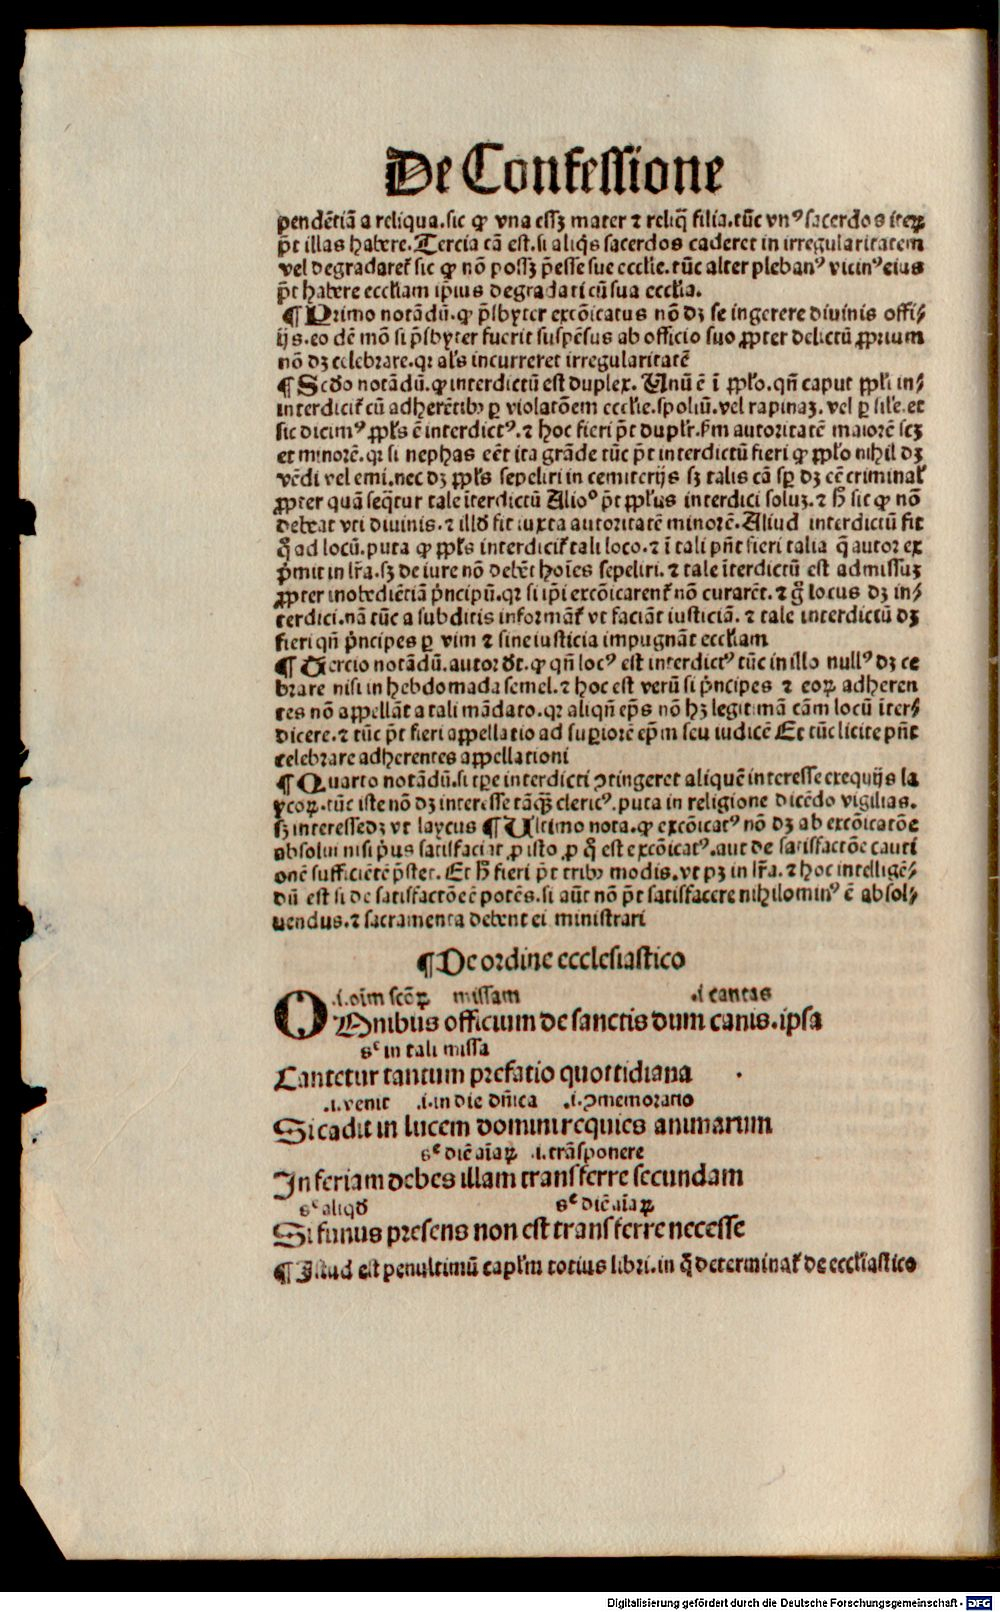 De Confessione
pendētiā a reliqua. sic ꝙ vna essꝫ mater ⁊ reliq̄ filia. tūc vnꝰ sacerdos iteꝝ
p̄t illas habere. Tercia cā est. si aliq̇s sacerdos caderet in irregularitatem
vel degradaret᷑ sic ꝙ nō possꝫ p̄esse sue ecclie. tūc alter plebanꝰ vicinꝰ eius
p̄t habere eccl̄iam ip̄ius degradati cū sua eccl̄ia.
¶ Primo notādū. ꝙ p̄sbyter excōicatus nō dꝫ se ingerere diuinis offi⸗
ijs. eo dē mō si p̄sbyter fuerit suspēsus ab officio suo ꝓpter delictū ꝓprium
nō dꝫ celebrare. qꝛ al̄s incurreret irregularitatē
¶ Scd̄o notādū. ꝙ interdictū est duplex. Unū ē ī ppl̄o. qn̄ caput ppl̄i in⸗
interdicit᷑ cū adherētibꝫ ꝑ violatōem ecclie. spoliū. vel rapinaꝫ. vel ꝑ sil̄e. et
sic dicimꝰ ppl̄s ē interdictꝰ. ⁊ hoc fieri p̄t duplr̄. ẜm autoritatē maiorē scꝫ
et minorē. qꝛ si nephas eēt ita grāde tūc p̄t interdictū fieri ꝙ ppl̄o nihil dꝫ
vēdi vel emi. nec dꝫ ppl̄s sepeliri in cemiterijs sꝫ talis cā sꝑ dꝫ eē criminal̄
ꝓpter quā seq̄tur tale īterdictū Alioꝰ p̄t ppl̄us interdici soluꝫ. ⁊ h̄ sic ꝙ nō
debeat vti diuinis. ⁊ illd̄ fit iuxta autoritatē minorē. Aliud interdictū fit
q̄ ad locū. puta ꝙ ppl̄s interdicit᷑ tali loco. ⁊ ī tali pn̄t fieri talia q̄ autor ex
p̄mit in lr̄a. sꝫ de iure nō debēt hoīes sepeliri. ⁊ tale īterdictū est admissuꝫ
ꝓpter inobediētiā p̄ncipū. qꝛ si ip̄i excōicarent᷑ nō curarēt. ⁊ g̊ locus dꝫ in⸗
terdici. nā tūc a subditis informāt᷑ vt faciāt iusticiā. ⁊ tale interdictū dꝫ
fieri qn̄ p̄ncipes ꝑ vim ⁊ sine iusticia impugnāt eccl̄iam
¶ Tercio notādū. autor dt̄. ꝙ qn̄ locꝰ est interdictꝰ tūc in illo nullꝰ dꝫ ce
brare nisi in hebdomada semel. ⁊ hoc est verū si p̄ncipes ⁊ eoꝝ adheren
tes nō appellāt a tali mādato. qꝛ aliqn̄ ep̄s nō hꝫ legitimā cām locū īter⸗
dicere. ⁊ tūc p̄t fieri appellatio ad supiorē ep̄m seu iudicē Et tūc licite pn̄t
celebrare adherentes appellationi
¶ Quarto notādū. si tꝑe interdicti ꝯtingeret aliquē interesse exequijs la
ycoꝝ. tūc iste nō dꝫ interesse tāqȝ clericꝰ. puta in religione dicēdo vigilias.
sꝫ interesse dꝫ vt laycus ¶ Ultimo nota. ꝙ excōicatꝰ nō dꝫ ab excōicatōe
absolui nisi p̄us satisfaciat ꝓ isto ꝓ q̊ est excōicatꝰ. aut de satisfactōe cauti
onē sufficiētē p̄stet. Et h̄ fieri p̄t tribꝫ modis. vt pꝫ in lr̄a. ⁊ hoc intelligē⸗
dū est si de satisfactōe ē potēs. si aūt nō p̄t satisfacere nihilominꝰ ē absol⸗
uendus. ⁊ sacramenta debent ei ministrari
¶ De ordine ecclesiastico
.i. oīm scōꝝ missam .i cantas
Omnibus officium de sanctis dum canis. ipsa
sꝫ in tali missa
Cantetur tantum prefatio quottidiana
.i. venit .i. in die dn̄ica .i. ꝯmemoratio
Si cadit in lucem domini requies animarum
sꝫ diē aīaꝝ .i. trāsponere
In feriam debes illam transferre secundam
sꝫ aliqd̄ sꝫ diē aīaꝝ
Si funus presens non est transferre necesse
¶ Istud est penultimū capl̄m totius libri. in q̊ determinat᷑ de eccl̄iastico
Digitalisierung gefördert durch die Deutsche Forschungsgemeinschaft - DFG